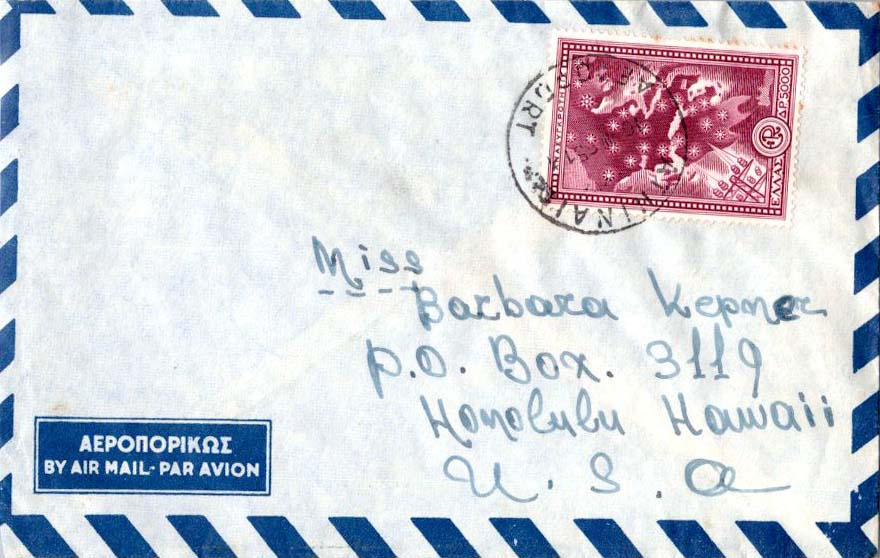 ΔΡ.5000
ΕΛΛΑΣ
ΑΝΑΣΥΓΚΡΟΤΗΣΙΣ
Miss
Barbara Kepner
P.O. Box. 3119
Honolulu Hawaii
U. S. a
ΑΕΡΟΠΟΡΙΚΩΣ
BY AIR MAIL-PAR AVION